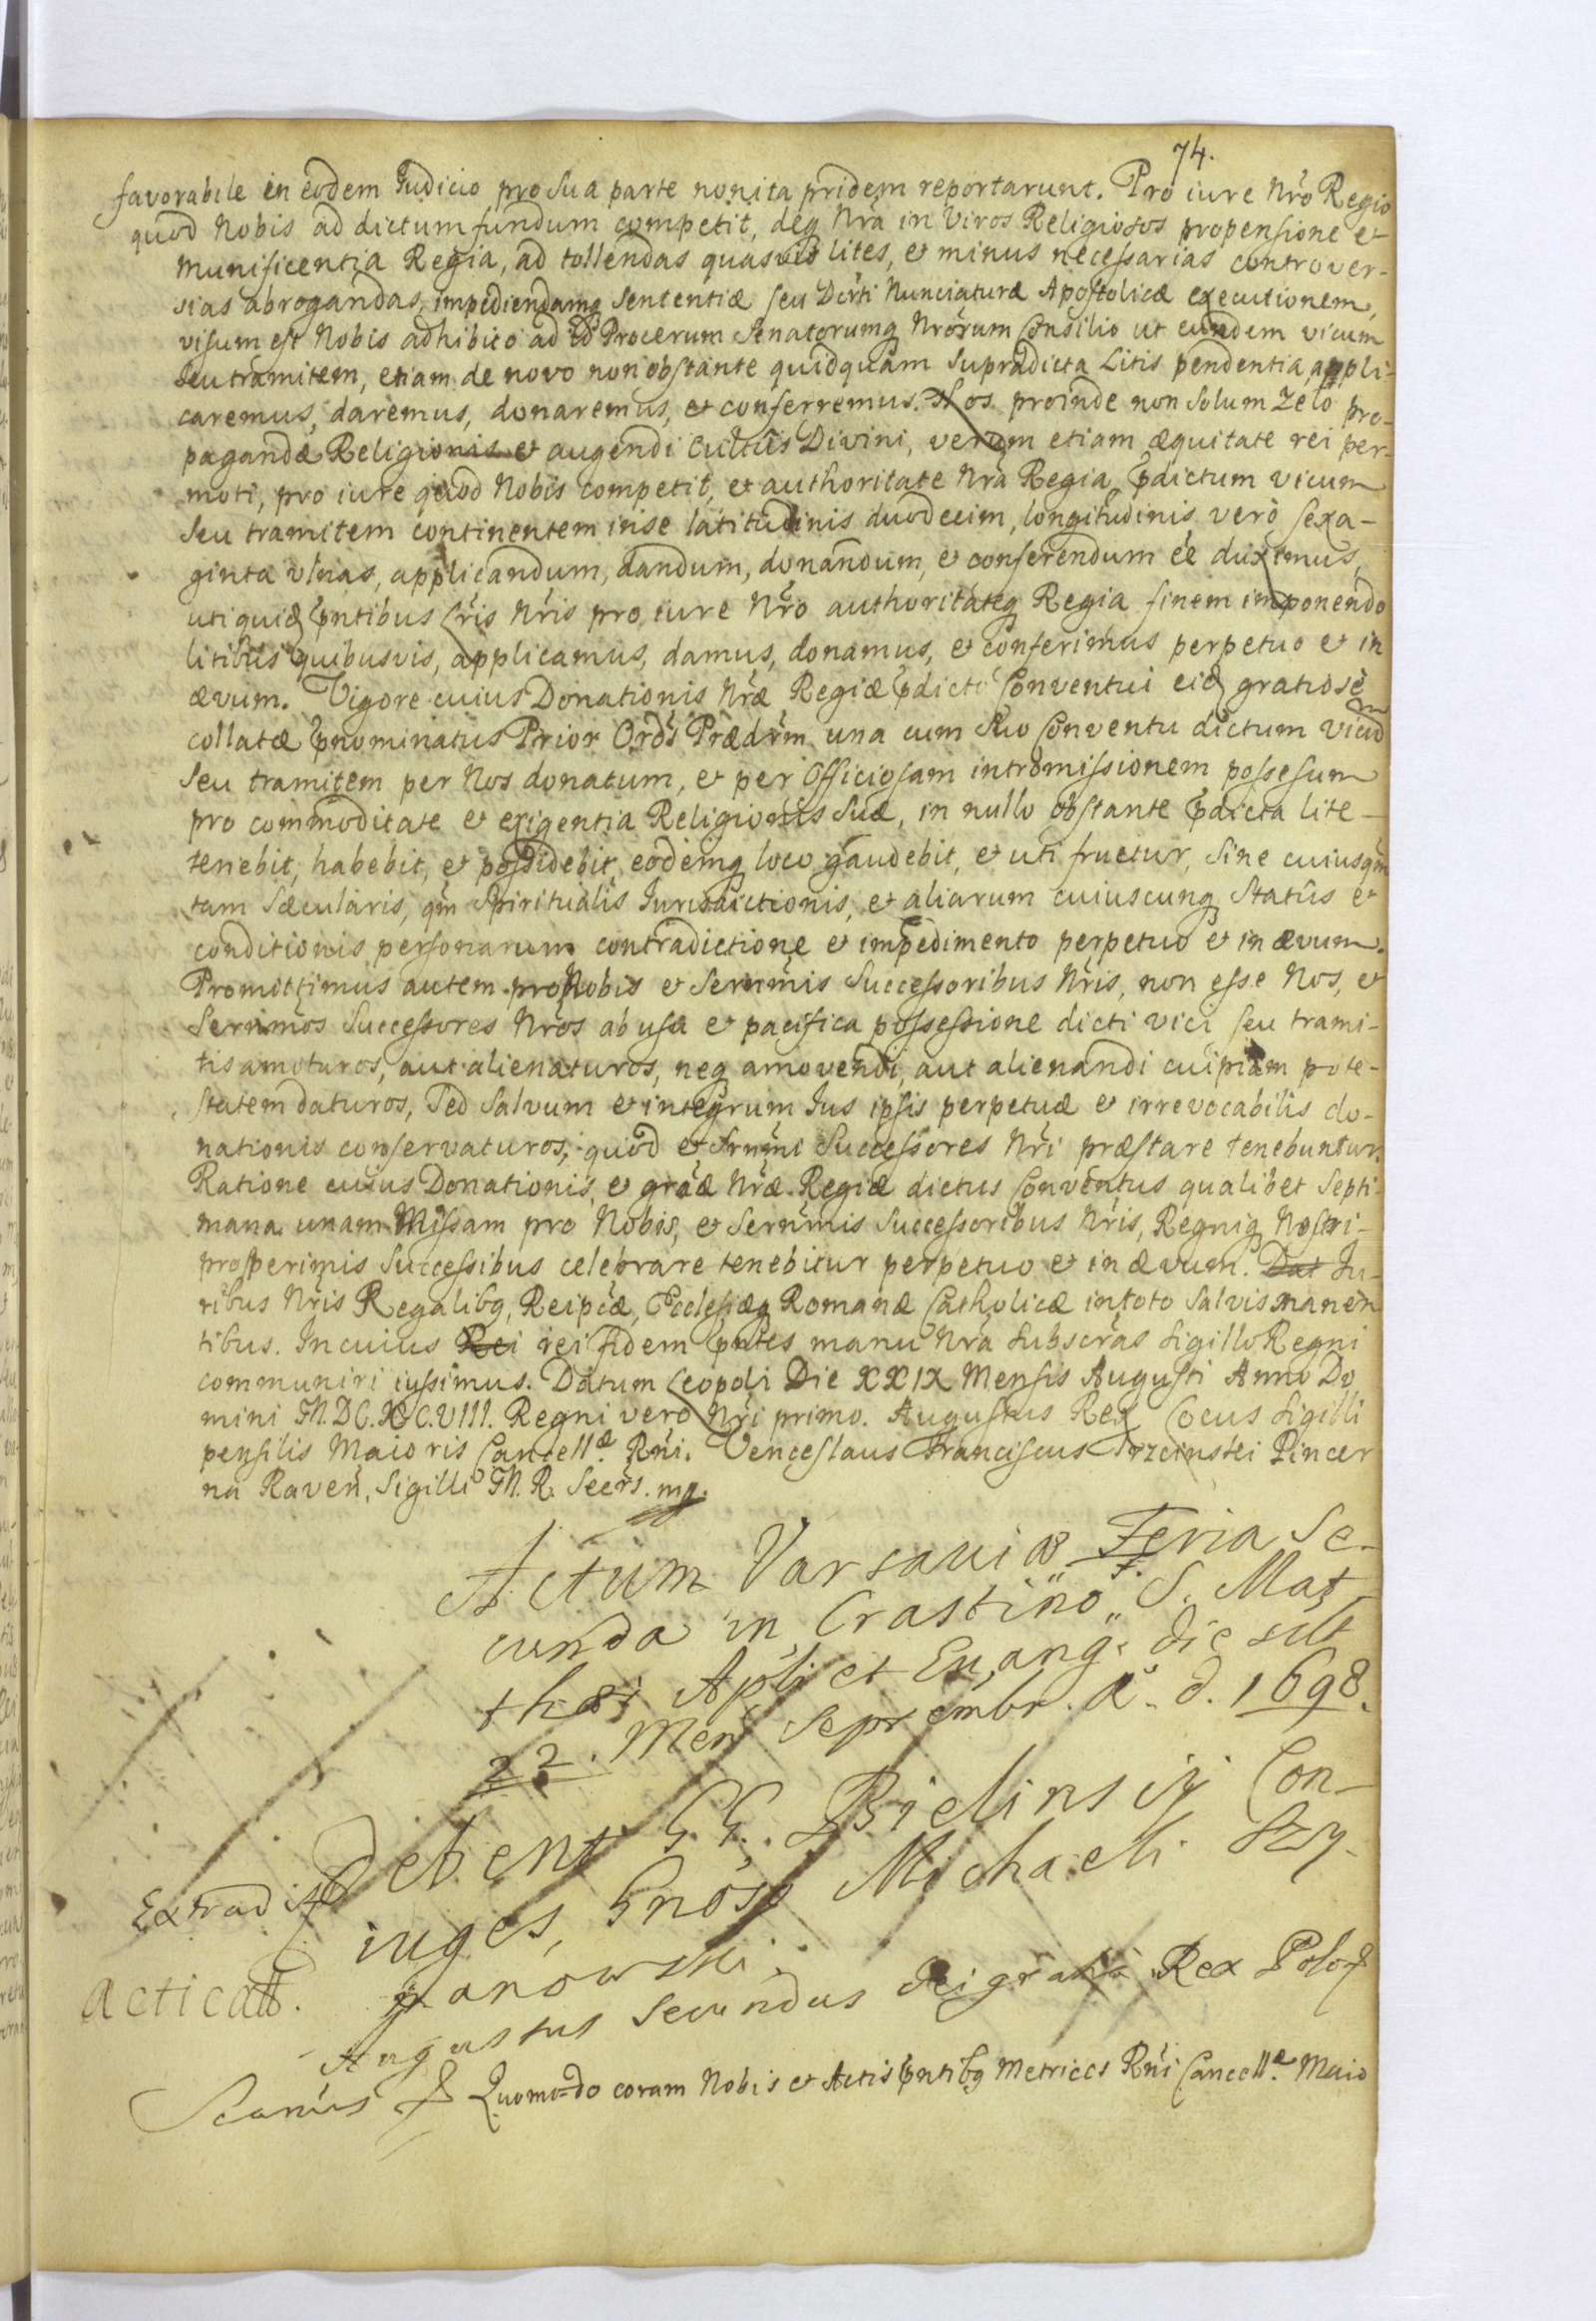 74.
favorabile in eodem Judicio pro sua parte non ita pridem reportarunt. Pro iure Nro Regio
quod Nobis ad dictum fundum competit, deq Nra in Viros Religiosos propensione et
Munificentia Regia, ad tollendas quasvis lites, et minus necessarias controver-
sias abrogandas, impediendamq Sententiæ seu Dcrti Nunciaturæ Apostolicæ executionem,
visum est Nobis adhibito ad id Procerum Senatorumq Nrorum Consilio ut eundem vicum
seu tramitem, etiam de novo non obstante quidquam supradicta Litis pendentia, appli-
caremus, daremus, donaremus, et conferremus. Nos proinde non solum Zelo pro-
pagandæ Religionis et augendi Cultûs Divini, verum etiam æquitate rei per-
moti, pro iure quod Nobis competit, et authoritate Nra Regia, pdictum vicum
seu tramitem continentem in se latitudinis duodecim, longitudinis verò sexa-
ginta ulnas, applicandum, dandum, donandum, et conferendum ee duximus,
uti quidem pntibus Lris Nris pro iure Nro authoritateq Regia finem imponendo
litibus quibusvis, applicamus, damus, donamus, et conferimus perpetuo et in
ævum. Vigore cuius Donationis Nræ Regiæ pdicto Conventui eidem gratiosè
collatæ pnominatus Prior Ordis Prædrm una cum suo Conventu dictum vicum
seu tramitem per Nos donatum, et per Officiosam intromissionem possesum
pro commoditate et exigentia Religionis suæ, in nullo obstante pdicta lite
tenebit, habebit, et possidebit, eodemq loco gaudebit, et uti fruetur, sine cuiusqm
tam Sæcularis, qm Spiritualis Jurisdictionis, et aliarum cuiuscunq Statûs et
conditionis personarum contradictione et impedimento perpetuo et in ævum.
Promittimus autem pro Nobis et Serenmis Successoribus Nris, non esse Nos, et
Serenmos Successores Nros ab usu et pacifica possessione dicti vici seu trami-
tis amoturos, aut alienaturos, neq amovendi, aut alienandi cuipiam pote-
statem daturos, Sed salvum et integrum Jus ipsis perpetuæ et irrevocabilis do-
nationis conservaturos; quod et Srnmi Successores Nri præstare tenebuntur.
Ratione cuius Donationis, et graæ Nræ Regiæ dictus Conventus qualibet Septi-
mana unam Missam pro Nobis, et Serenmis Successoribus Nris, Regniq Nostri
prosperimis Successibus celebrare tenebitur perpetuo et in ævum. Dat Ju-
ribus Nris Regalibq, Reipcæ, Ecclesiæq Romanæ Catholicæ in toto salvis manen
tibus. In cuius Rei rei fidem pntes manu Nra subscras sigillo Regni
communiri iussimus. Datum Leopoli Die XXIX Mensis Augusti Anno Do
mini M.DC.XC.VIII. Regni vero Nri primo. Augustus Rex Locus Sigilli
pensilis Maioris Cancellæ Rni. Venceslaus Franciscus Trzcinski Pincer
na Raven, Sigilli M. R. Secrs. mp.
Actum Varsaviæ Feria Se-
cunda in Crastino S. Mat
thæi Apli et Euang. die scilt
22. Mens Septembr. A. d. 1698.
Debent GG. Bielinscij Con-
iuges, Gnoso Michaeli Szy-
manowski.
Extradit
Acticatt.
Augustus Secundus Dei gratia Rex Polo&
Scanus & Quomodo coram Nobis et Actis pntibq Metrices Rni Cancellæ Maio